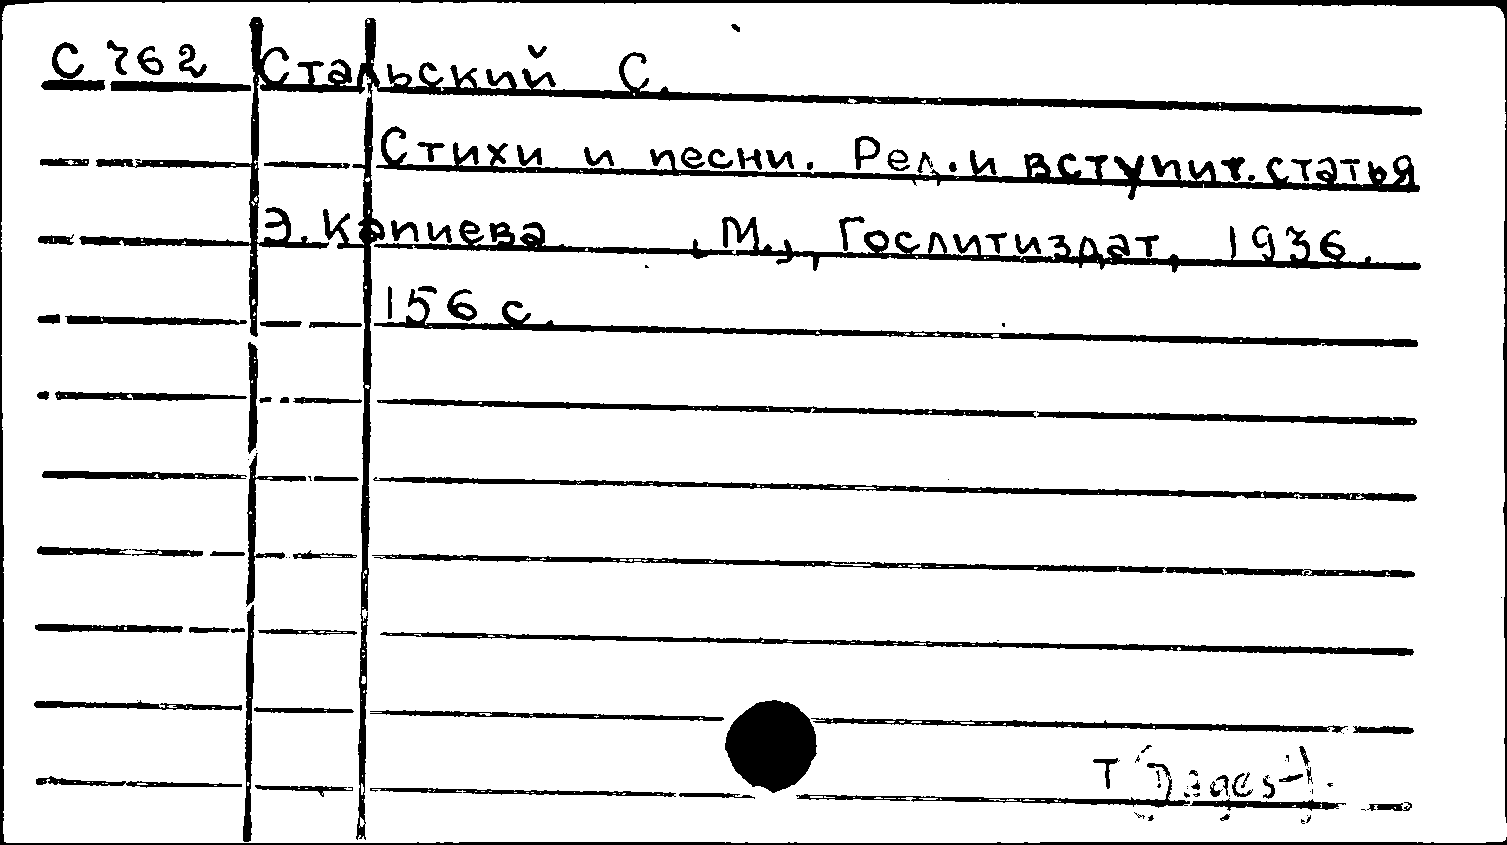 С 762 Стальский С.
Стихи и песни. Ред. и вступит. статья
Э. Капиева , М., Гослитиздат, 1936.
156 с.
T (Dagest).